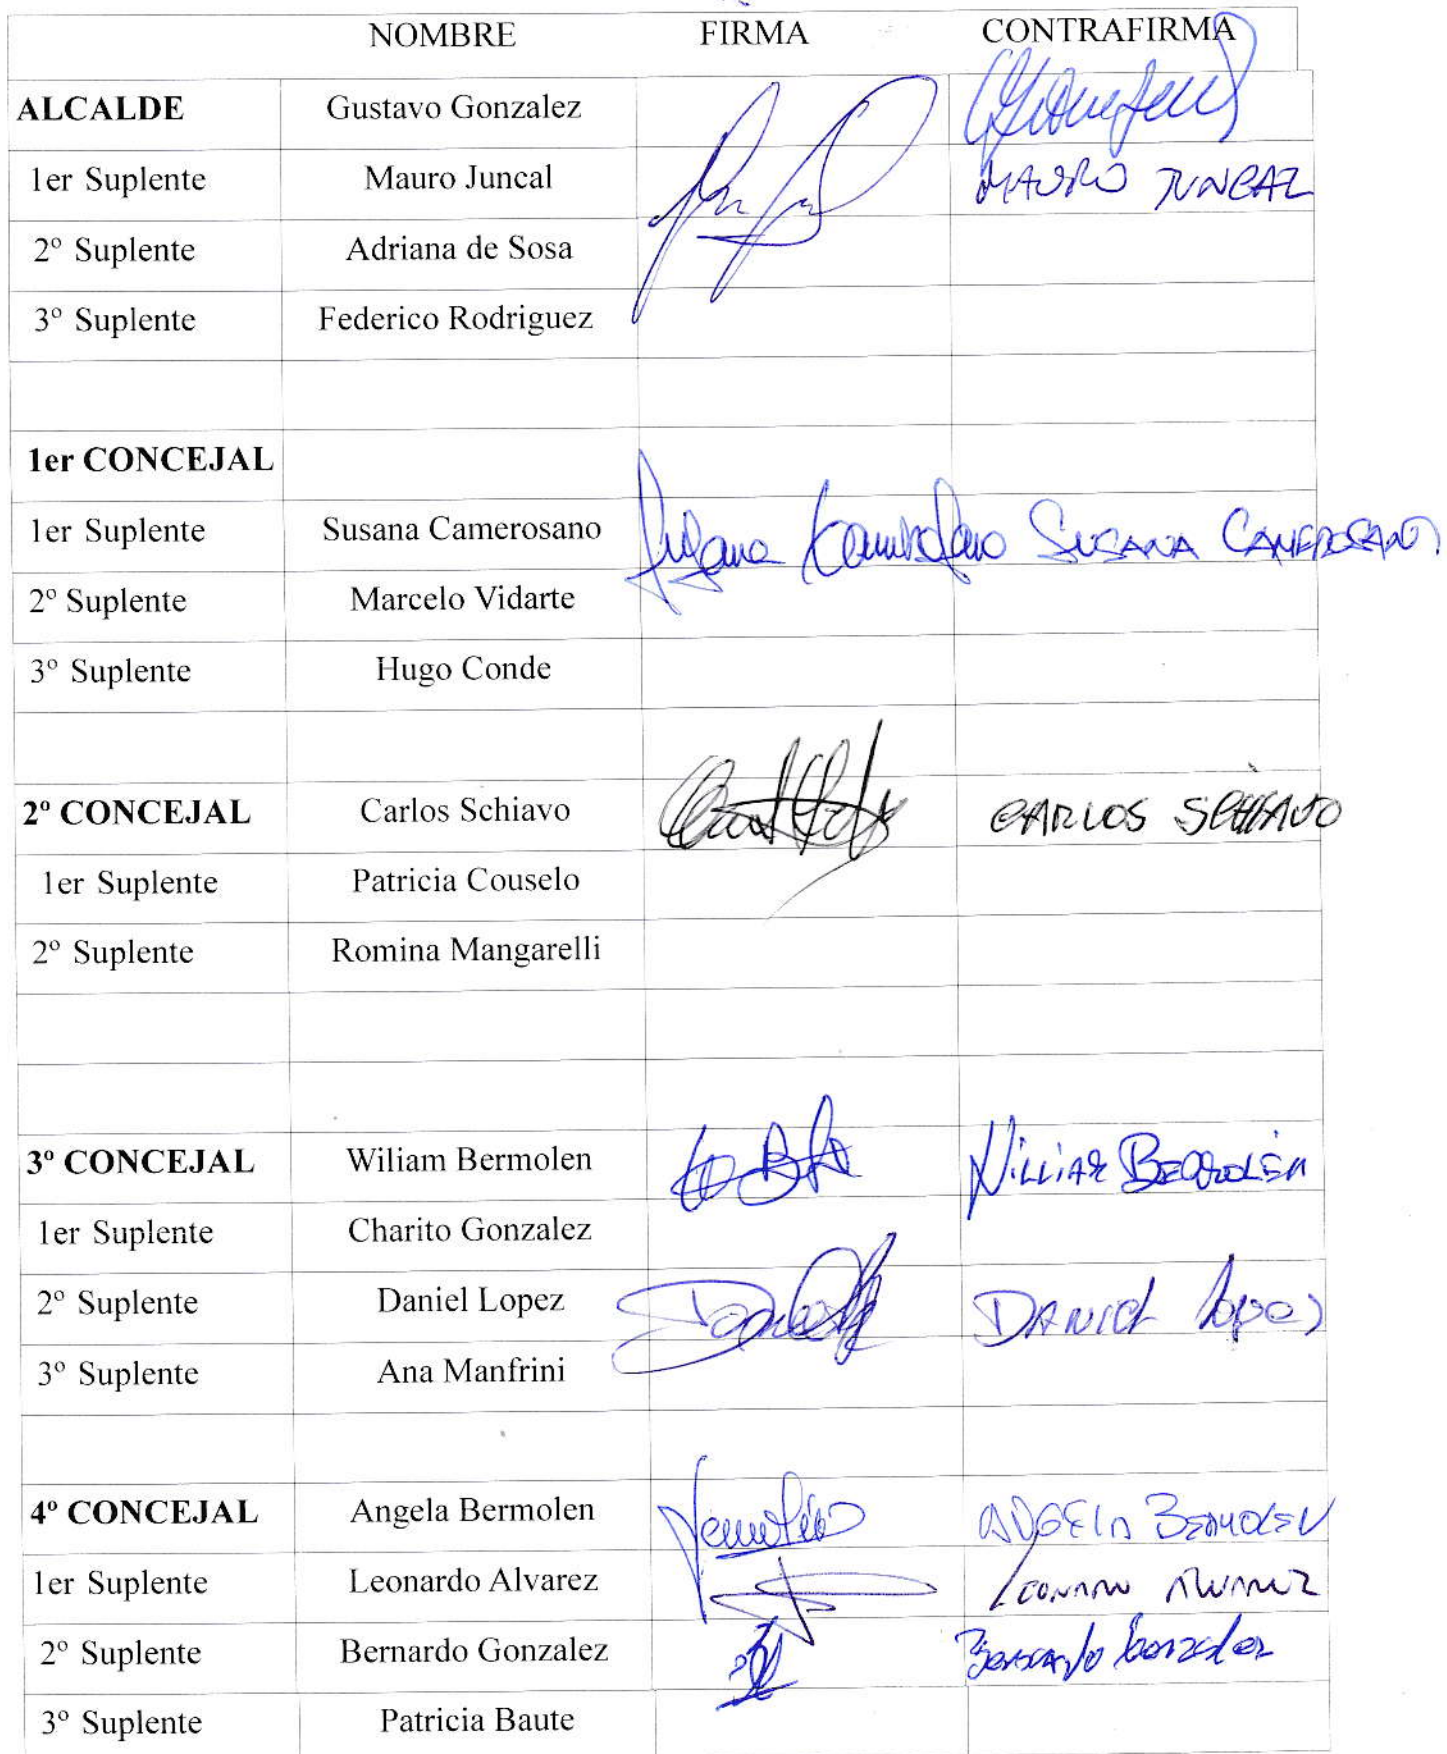 NOMBRE FIRMA CONTRAFIRMA
ALCALDE Gustavo Gonzalez
1er Suplente Mauro Juncal MAURO JUNCAL
2º Suplente Adriana de Sosa
3º Suplente Federico Rodriguez
1er CONCEJAL
1er Suplente Susana Camerosano Susana Camerosano SUSANA CAMEROSANO
2º Suplente Marcelo Vidarte
3º Suplente Hugo Conde
2º CONCEJAL Carlos Schiavo CARLOS SCHIAVO
1er Suplente Patricia Couselo
2º Suplente Romina Mangarelli
3º CONCEJAL Wiliam Bermolen WILLIAM BERMOLEN
1er Suplente Charito Gonzalez
2º Suplente Daniel Lopez DANIEL Lopez
3º Suplente Ana Manfrini
4º CONCEJAL Angela Bermolen ANGELA BERMOLEN
1er Suplente Leonardo Alvarez LEONARDO ALVAREZ
2º Suplente Bernardo Gonzalez Bernardo Gonzalez
3º Suplente Patricia Baute